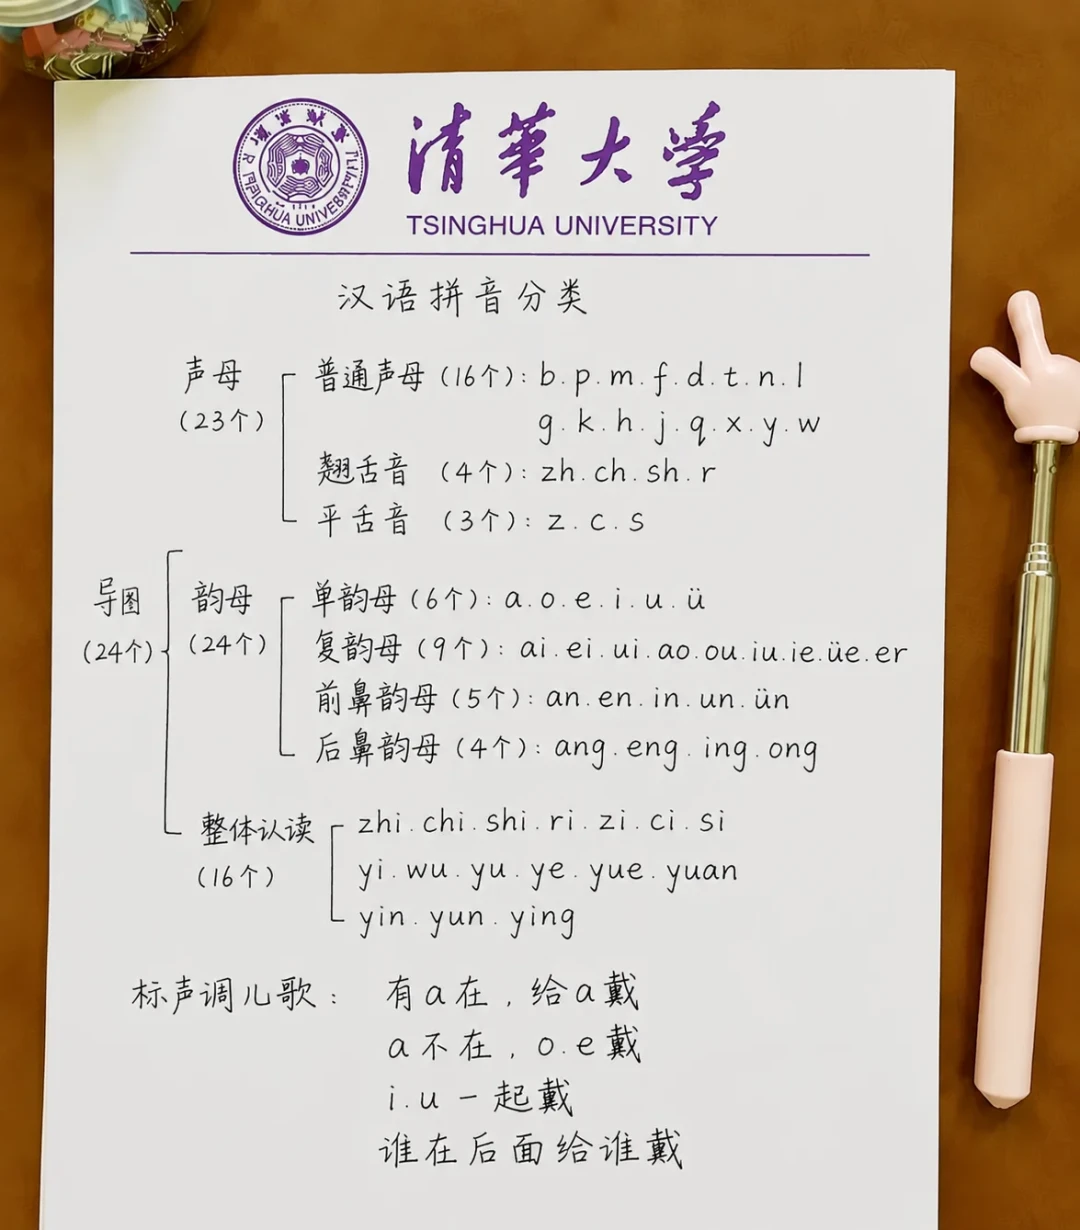 清華大学
TSINGHUA UNIVERSITY
汉语拼音分类
声母
(23个)
普通声母(16个): b.p.m.f.d.t.n.l
g.k.h.j.q.x.y.w
翘舌音 (4个): zh.ch.sh.r
平舌音 (3个): z.c.s
导图
(24个)
韵母
(24个)
单韵母(6个): a.o.e.i.u.ü
复韵母(9个): ai.ei.ui.ao.ou.iu.ie.üe.er
前鼻韵母(5个): an.en.in.un.ün
后鼻韵母(4个): ang.eng.ing.ong
整体认读
(16个)
zhi.chi.shi.ri.zi.ci.si
yi.wu.yu.ye.yue.yuan
yin.yun.ying
标声调儿歌: 有a在,给a戴
a不在,o.e戴
i.u一起戴
谁在后面给谁戴